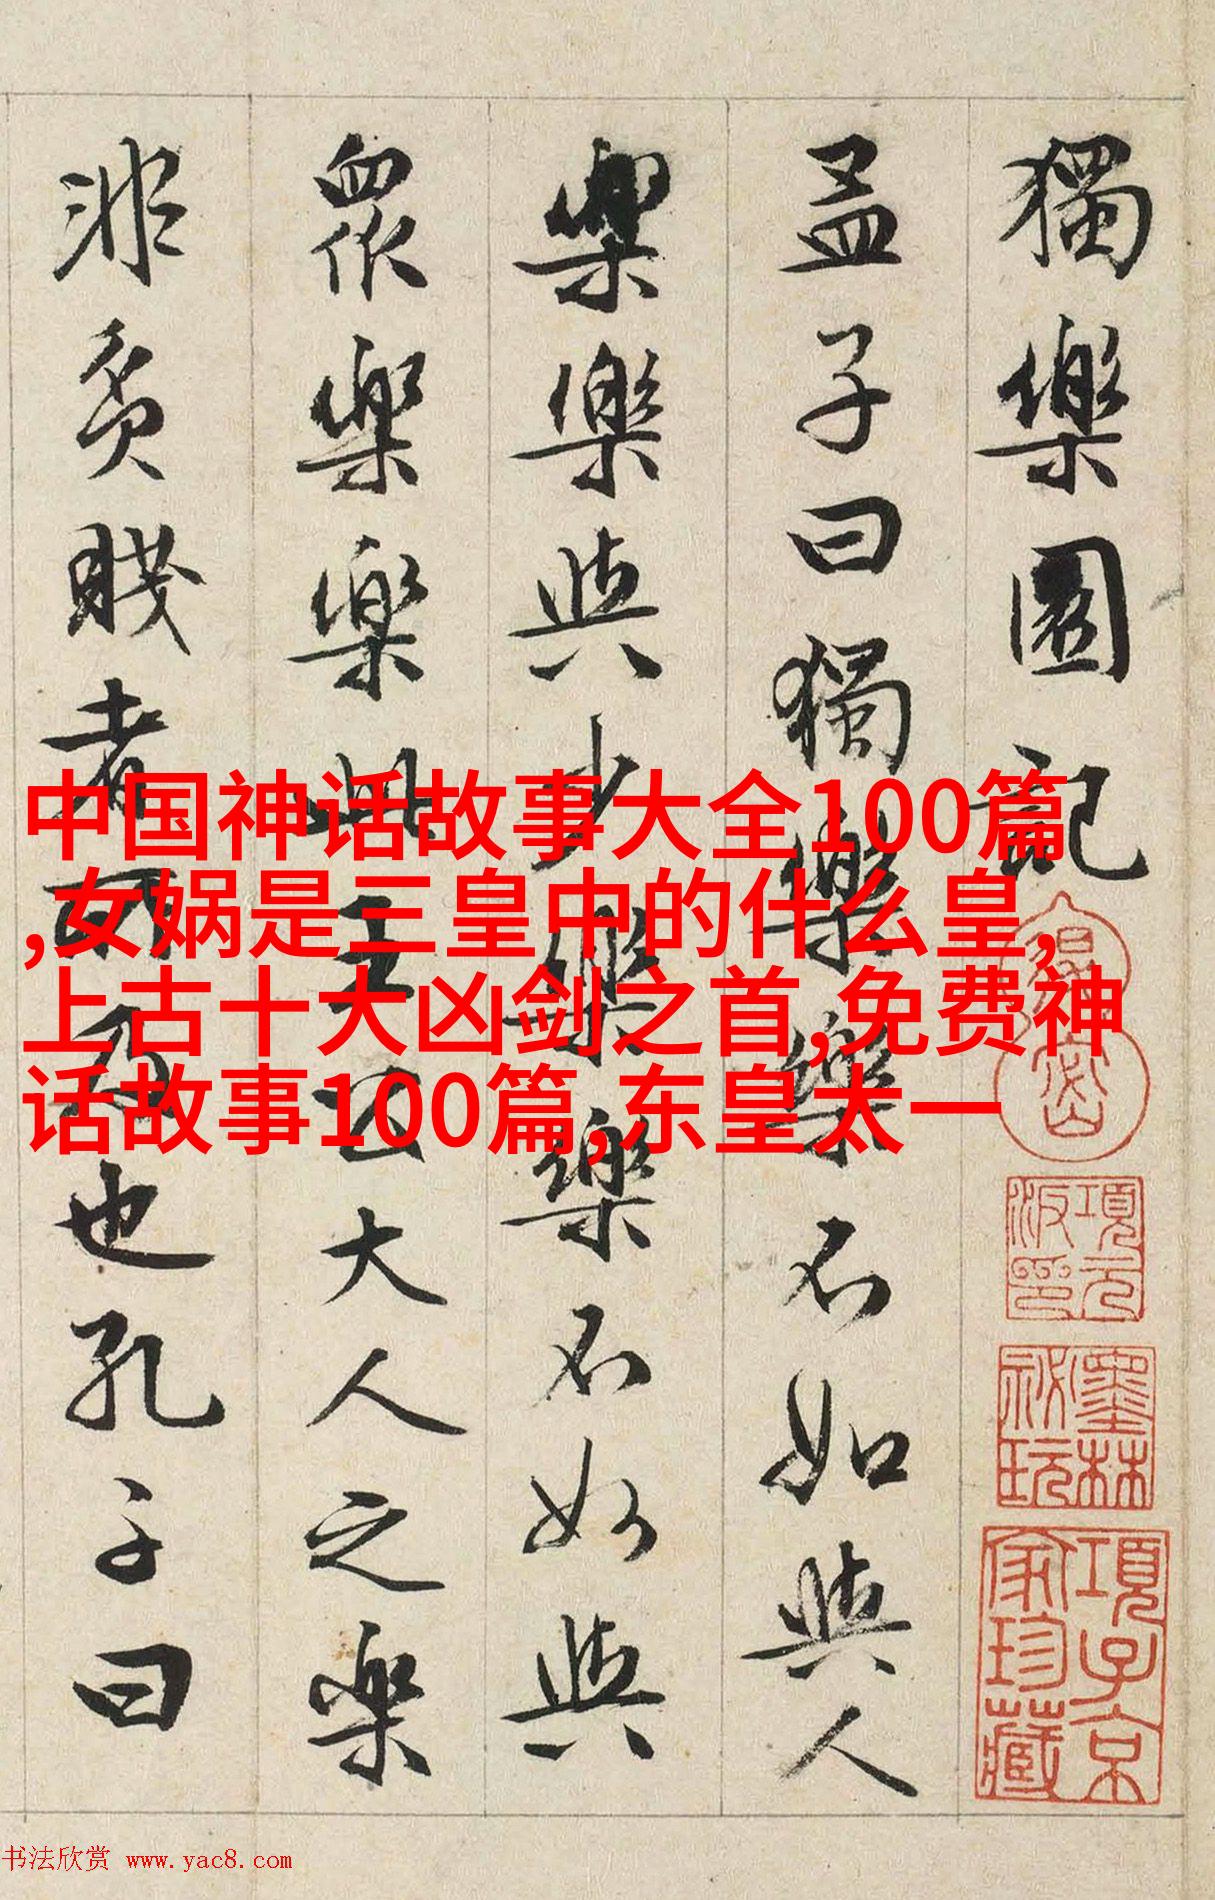 獨樂園記
孟子曰獨樂樂不如與人
樂樂與少樂樂不如與
眾樂樂此王公大人之樂
非貧賤者所及也孔子曰
中国神话故事大全100篇
,女娲是三皇中的什么皇,
上古十大凶剑之首,免费神
话故事100篇,东皇太一
項元汴印
墨林秘玩
項子京家珍藏
书法欣赏 www.yac8.com